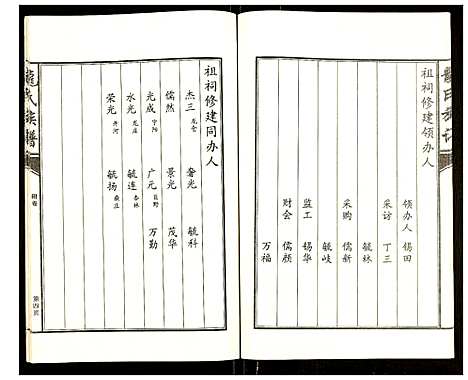 龍氏族譜
祖祠修建領办人
領办人 锡田
采访 丁三
毓林
采购 儒新
毓岐
监工 锡华
财会 儒颜
万福
祖祠修建同办人
杰三 奢光 毓科
儒然 景光 茂华
光成 广元 万勤
水光 毓连
荣光 毓扬
龍氏族譜
附卷